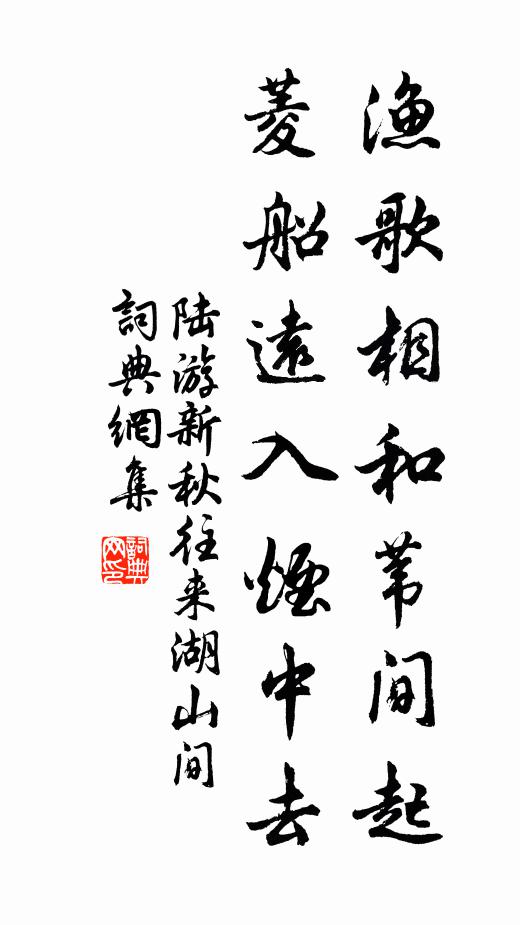 渔歌相和苇间起
菱船遠入煙中去
陆游新秋往来湖山间
詞典網集
詞典网印